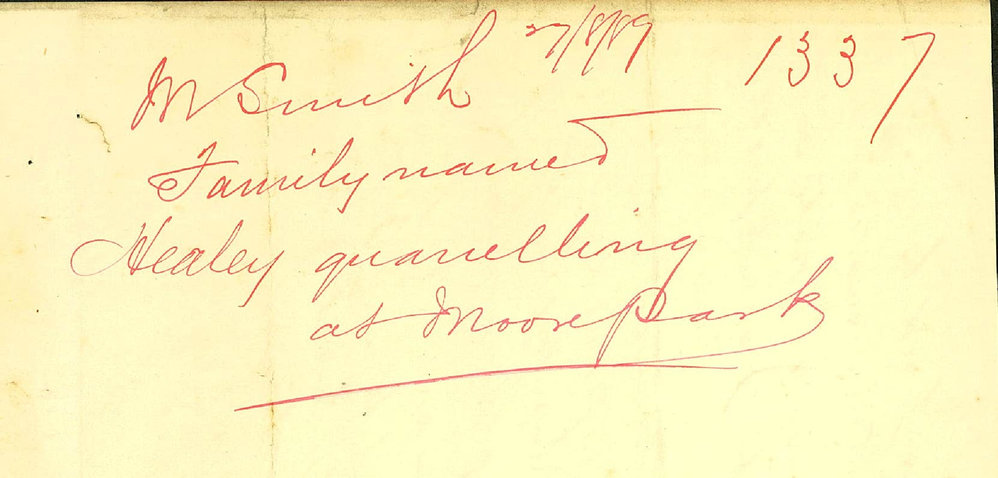 M Smith 27/8/89 1337
Family named
Healey quarrelling
at Moore Park